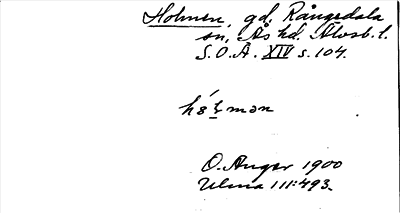 Holmen, gd, Rångedala
sn, Ås hd. Älvsb. l.
S.O.Ä. XIV s. 104.
O. Anger 1900
Ulma 111:493.